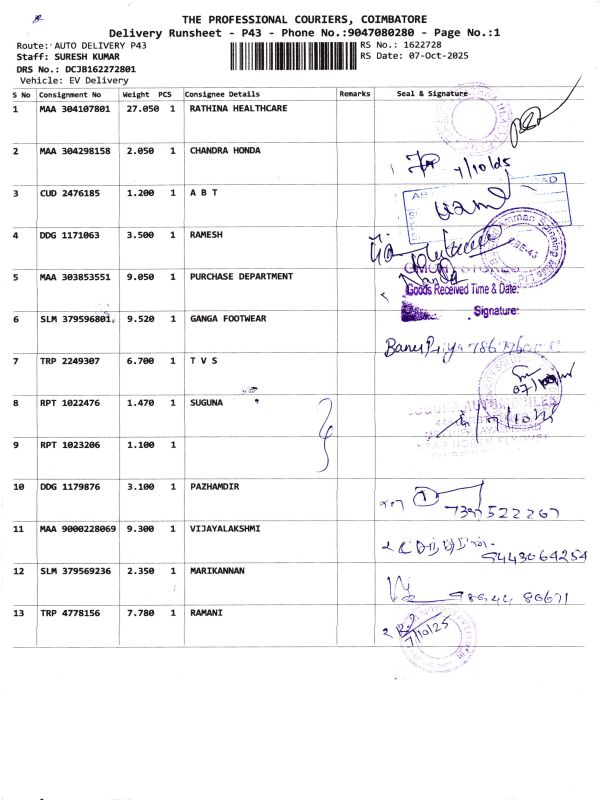 THE PROFESSIONAL COURIERS, COIMBATORE
Delivery Runsheet - P43 - Phone No.:9047080280 - Page No.:1
Route: AUTO DELIVERY P43 RS No.: 1622728
Staff: SURESH KUMAR RS Date: 07-Oct-2025
DRS No.: DCJB162272801
Vehicle: EV Delivery
S No Consignment No Weight PCS Consignee Details Remarks Seal & Signature
1 MAA 304107801 27.050 1 RATHINA HEALTHCARE
2 MAA 304298158 2.050 1 CHANDRA HONDA
7/10/25
3 CUD 2476185 1.200 1 A B T
4 DDG 1171063 3.500 1 RAMESH
5 MAA 303853551 9.050 1 PURCHASE DEPARTMENT
Goods Received Time & Date:
Signature:
6 SLM 379596801 9.520 1 GANGA FOOTWEAR
Banu Priya
7 TRP 2249307 6.700 1 T V S
8 RPT 1022476 1.470 1 SUGUNA
7/10/25
9 RPT 1023206 1.100 1
10 DDG 1179876 3.100 1 PAZHAMDIR
11 MAA 9000228069 9.300 1 VIJAYALAKSHMI
9443064254
12 SLM 379569236 2.350 1 MARIKANNAN
13 TRP 4778156 7.780 1 RAMANI
7/10/25